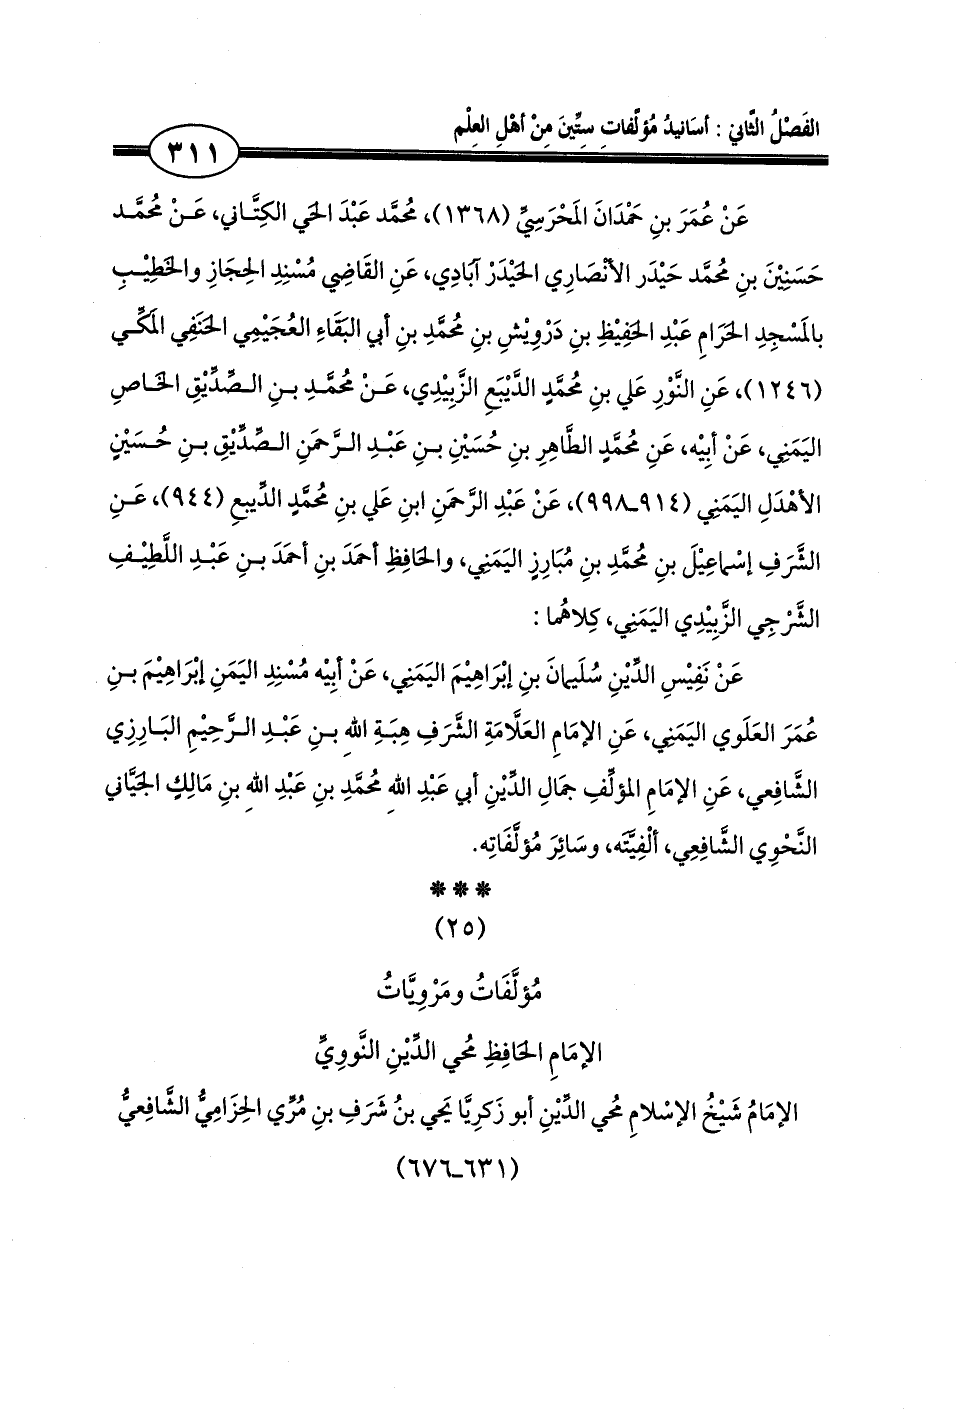 الفَصْلُ الثَّاني : أسَانيدُ مُؤلَّفاتِ سِتِّينَ مِنْ أهْلِ العِلْم
٣١١
عَنْ عُمَرَ بنِ حَمْدَانَ المَحْرَسِيِّ (١٣٦٨)، مُحمَّد عَبْدَ الحَي الكِتَّاني، عَـنْ مُحمَّـد
حَسَنِيْنَ بنِ مُحمَّد حَيْدَر الأنْصَاري الحَيْدَرْ آبَادِي، عَنِ القَاضِي مُسْنِدِ الحِجَازِ والخَطِيْبِ
بالمَسْجِدِ الحَرَامِ عَبْدِ الحَفِيْظِ بنِ دَرْوِيْشِ بنِ مُحمَّدِ بنِ أبي البَقَاءِ العُجَيْمِي الحَنَفِي المَكِّي
(١٢٤٦)، عَنِ النَّوْرِ عَلي بنِ مُحمَّدٍ الدَّيْبَعِ الزَّبِيْدِي، عَـنْ مُحمَّـدِ بـنِ الـصِّدِّيْقِ الخَـاصِ
اليَمَنِي، عَنْ أبِيْه، عَنِ مُحمَّدٍ الطَّاهِرِ بنِ حُسَيْنِ بـنِ عَبْـدِ الـرَّحمَنِ الـصِّدِّيْقِ بـنِ حُـسَيْنٍ
الأهْدَلِ اليَمَنِي (٩١٤ـ٩٩٨)، عَنْ عَبْدِ الرَّحمَنِ ابنِ عَلي بنِ مُحمَّدٍ الدِّيبعِ (٩٤٤)، عَـنِ
الشَّرَفِ إسْماعِيْلَ بنِ مُحمَّدِ بنِ مُبَارِزٍ اليَمَنِي، والحَافِظِ أحمَدَ بنِ أحمَدَ بـنِ عَبْـدِ اللَّطِيْـفِ
الشَّرْجِي الزَّبِيْدِي اليَمَنِي، كِلاهُما :
عَنْ نَفِيْسِ الدِّيْنِ سُلَيمانَ بنِ إبْرَاهِيْمَ اليَمَنِي، عَنْ أبِيْه مُسْنِدِ اليَمَنِ إبْرَاهِيْمَ بـنِ
عُمَرَ العَلَوي اليَمَنِي، عَنِ الإمَامِ العَلَّامَةِ الشَّرَفِ هِبَةِ اللهِ بـنِ عَبْـدِ الـرَّحِيْمِ البَـارِزِي
الشَّافعِي، عَنِ الإمَامِ المُؤلِّفِ جمَالِ الدِّيْنِ أبي عَبْدِ اللهِ مُحمَّدِ بنِ عَبْدِ اللهِ بنِ مَالِكٍ الجَيَّاني
النَّحْوِي الشَّافِعِي، ألْفِيَّتَه، وسَائِرَ مُؤلَّفَاتِه.
***
(٢٥)
مُؤلَّفَاتُ ومَرْوِيَّاتُ
الإمَامِ الحَافِظِ مُحي الدِّيْنِ النَّوويِّ
الإمَامُ شَيْخُ الإسْلامِ مُحي الدِّيْنِ أبو زَكرِيَّا يَحي بنُ شَرَفِ بنِ مُرِّي الحِزَاميُّ الشَّافعيُّ
(٦٣١ـ٦٧٦)